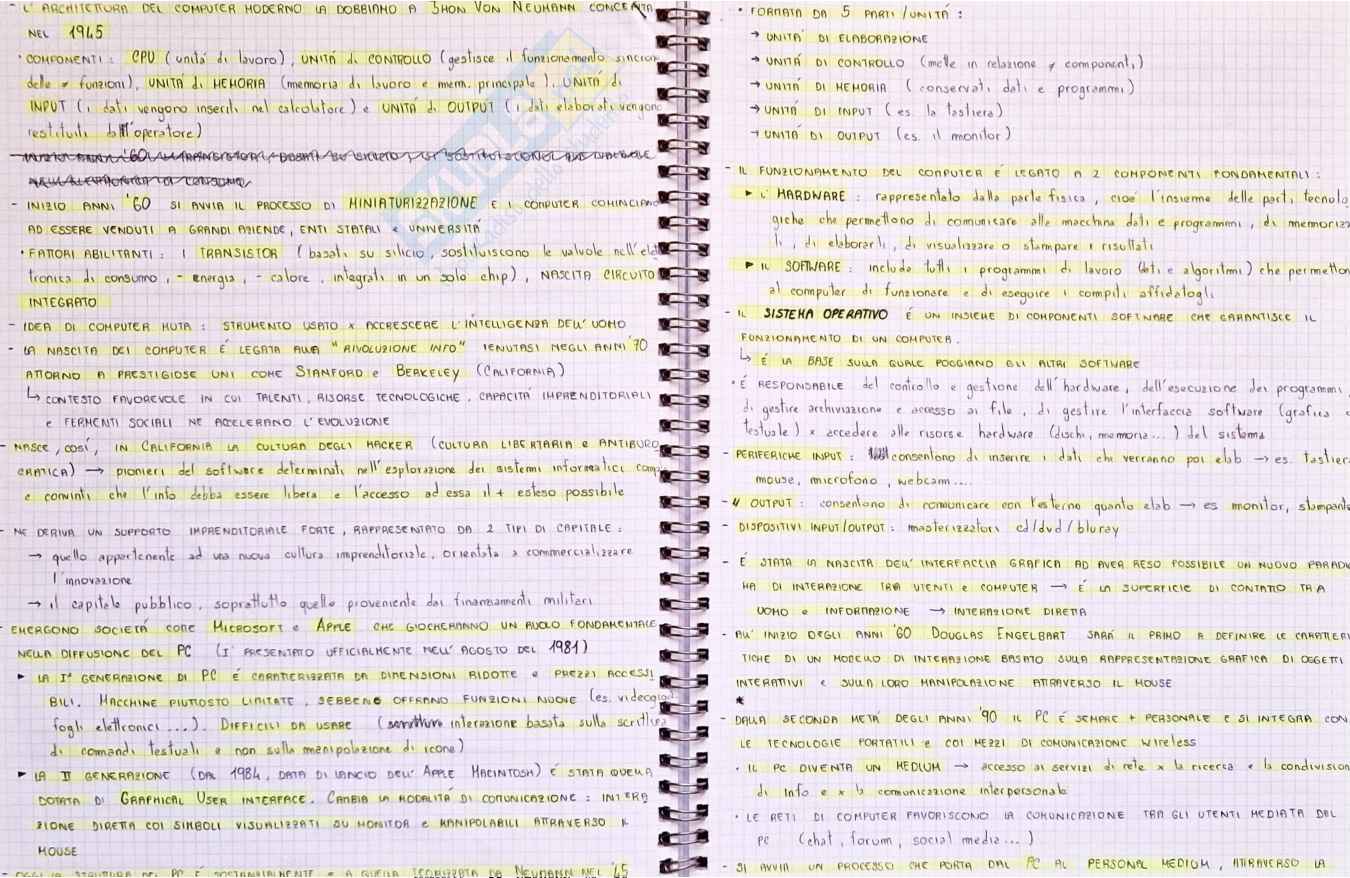 - L'ARCHITETTURA DEL COMPUTER MODERNO LA DOBBIAMO A JHON VON NEUMANN CONCEPITA
NEL 1945
· COMPONENTI: CPU (unità di lavoro), UNITÀ di CONTROLLO (gestisce il funzionamento sincron
delle ≠ funzioni), UNITÀ di MEMORIA (memoria di lavoro e mem. principale), UNITÀ di
INPUT (i dati vengono inseriti nel calcolatore) e UNITÀ di OUTPUT (i dati elaborati vengono
restituiti dall'operatore)
- INIZIO ANNI '60 SI AVVIA IL PROCESSO DI MINIATURIZZAZIONE E I COMPUTER COMINCIANO
AD ESSERE VENDUTI A GRANDI AZIENDE, ENTI STATALI e UNIVERSITÀ
· FATTORI ABILITANTI: I TRANSISTOR (basati su silicio, sostituiscono le valvole nell'elet
tronica di consumo, - energia, - calore, integrati in un solo chip), NASCITA CIRCUITO
INTEGRATO
- IDEA DI COMPUTER MUTA: STRUMENTO USATO x ACCRESCERE L'INTELLIGENZA DELL'UOMO
- LA NASCITA DEI COMPUTER È LEGATA ALLA "RIVOLUZIONE INFO" TENUTASI NEGLI ANNI '70
ATTORNO A PRESTIGIOSE UNI COME STANFORD e BERKELEY (CALIFORNIA)
↳ CONTESTO FAVOREVOLE IN CUI TALENTI, RISORSE TECNOLOGICHE, CAPACITÀ IMPRENDITORIALI
e FERMENTI SOCIALI NE ACCELERANO L'EVOLUZIONE
- NASCE, COSÌ, IN CALIFORNIA LA CULTURA DEGLI HACKER (CULTURA LIBERTARIA e ANTIBURO
CRATICA) → pionieri del software determinati nell'esplorazione dei sistemi informatici comp
e convinti che l'info debba essere libera e l'accesso ad essa il + esteso possibile
- NE DERIVA UN SUPPORTO IMPRENDITORIALE FORTE, RAPPRESENTATO DA 2 TIPI DI CAPITALE:
→ quello appartenente ad una nuova cultura imprenditoriale, orientata a commercializzare
l'innovazione
→ il capitale pubblico, soprattutto quello proveniente dai finanziamenti militari
- EMERGONO SOCIETÀ COME MICROSOFT e APPLE CHE GIOCHERANNO UN RUOLO FONDAMENTALE
NELLA DIFFUSIONE DEL PC (I° PRESENTATO UFFICIALMENTE NELL'AGOSTO DEL 1981)
► LA Iª GENERAZIONE DI PC È CARATTERIZZATA DA DIMENSIONI RIDOTTE e PREZZI ACCESSI
BILI. MACCHINE PIUTTOSTO LIMITATE, SEBBENE OFFRANO FUNZIONI NUOVE (es. videogio
fogli elettronici ...). DIFFICILI DA USARE (interazione basata sulla scrittura
di comandi testuali e non sulla manipolazione di icone)
► LA II GENERAZIONE (DAL 1984, DATA DI LANCIO DELL'APPLE MACINTOSH) È STATA QUELLA
DOTATA DI GRAPHICAL USER INTERFACE. CAMBIA LA MODALITÀ DI COMUNICAZIONE: INTERA
ZIONE DIRETTA COI SIMBOLI VISUALIZZATI SU MONITOR e MANIPOLABILI ATTRAVERSO IL
MOUSE
- OGGI LA STRUTTURA DEL PC È SOSTANZIALMENTE = A QUELLA TEORIZZATA DA NEUMANN NEL '45
· FORMATA DA 5 PARTI/UNITÀ:
→ UNITÀ DI ELABORAZIONE
→ UNITÀ DI CONTROLLO (mette in relazione ≠ componenti)
→ UNITÀ DI MEMORIA (conservati dati e programmi)
→ UNITÀ DI INPUT (es. la tastiera)
→ UNITÀ DI OUTPUT (es. il monitor)
- IL FUNZIONAMENTO DEL COMPUTER È LEGATO A 2 COMPONENTI FONDAMENTALI:
► L'HARDWARE: rappresentato dalla parte fisica, cioè l'insieme delle parti tecnolo
giche che permettono di comunicare alla macchina dati e programmi, di memorizza
li, di elaborarli, di visualizzare o stampare i risultati
► IL SOFTWARE: include tutti i programmi di lavoro (dati e algoritmi) che permetton
al computer di funzionare e di eseguire i compiti affidatogli
- IL SISTEMA OPERATIVO È UN INSIEME DI COMPONENTI SOFTWARE CHE GARANTISCE IL
FUNZIONAMENTO DI UN COMPUTER.
↳ È LA BASE SULLA QUALE POGGIANO GLI ALTRI SOFTWARE
· È RESPONSABILE del controllo e gestione dell'hardware, dell'esecuzione dei programmi,
di gestire archiviazione e accesso ai file, di gestire l'interfaccia software (grafica o
testuale) x accedere alle risorse hardware (dischi, memoria...) del sistema
- PERIFERICHE INPUT: consentono di inserire i dati che verranno poi elab → es. tastiera
mouse, microfono, webcam....
- " OUTPUT: consentono di comunicare con l'esterno quanto elab → es monitor, stampante
- DISPOSITIVI INPUT/OUTPUT: masterizzatori cd/dvd/bluray
- È STATA LA NASCITA DELL'INTERFACCIA GRAFICA AD AVER RESO POSSIBILE UN NUOVO PARADIG
MA DI INTERAZIONE TRA UTENTI e COMPUTER → È LA SUPERFICIE DI CONTATTO TRA
UOMO e INFORMAZIONE → INTERAZIONE DIRETTA
- ALL'INIZIO DEGLI ANNI '60 DOUGLAS ENGELBART SARÀ IL PRIMO A DEFINIRE LE CARATTERI
TICHE DI UN MODELLO DI INTERAZIONE BASATO SULLA RAPPRESENTAZIONE GRAFICA DI OGGETTI
INTERATTIVI e SULLA LORO MANIPOLAZIONE ATTRAVERSO IL MOUSE
*
- DALLA SECONDA METÀ DEGLI ANNI '90 IL PC È SEMPRE + PERSONALE E SI INTEGRA CON
LE TECNOLOGIE PORTATILI e COI MEZZI DI COMUNICAZIONE WIRELESS
· IL PC DIVENTA UN MEDIUM → accesso ai servizi di rete x la ricerca e la condivision
di info e x la comunicazione interpersonale
· LE RETI DI COMPUTER FAVORISCONO LA COMUNICAZIONE TRA GLI UTENTI MEDIATA DAL
PC (chat, forum, social media...)
- SI AVVIA UN PROCESSO CHE PORTA DAL PC AL PERSONAL MEDIUM, ATTRAVERSO LA